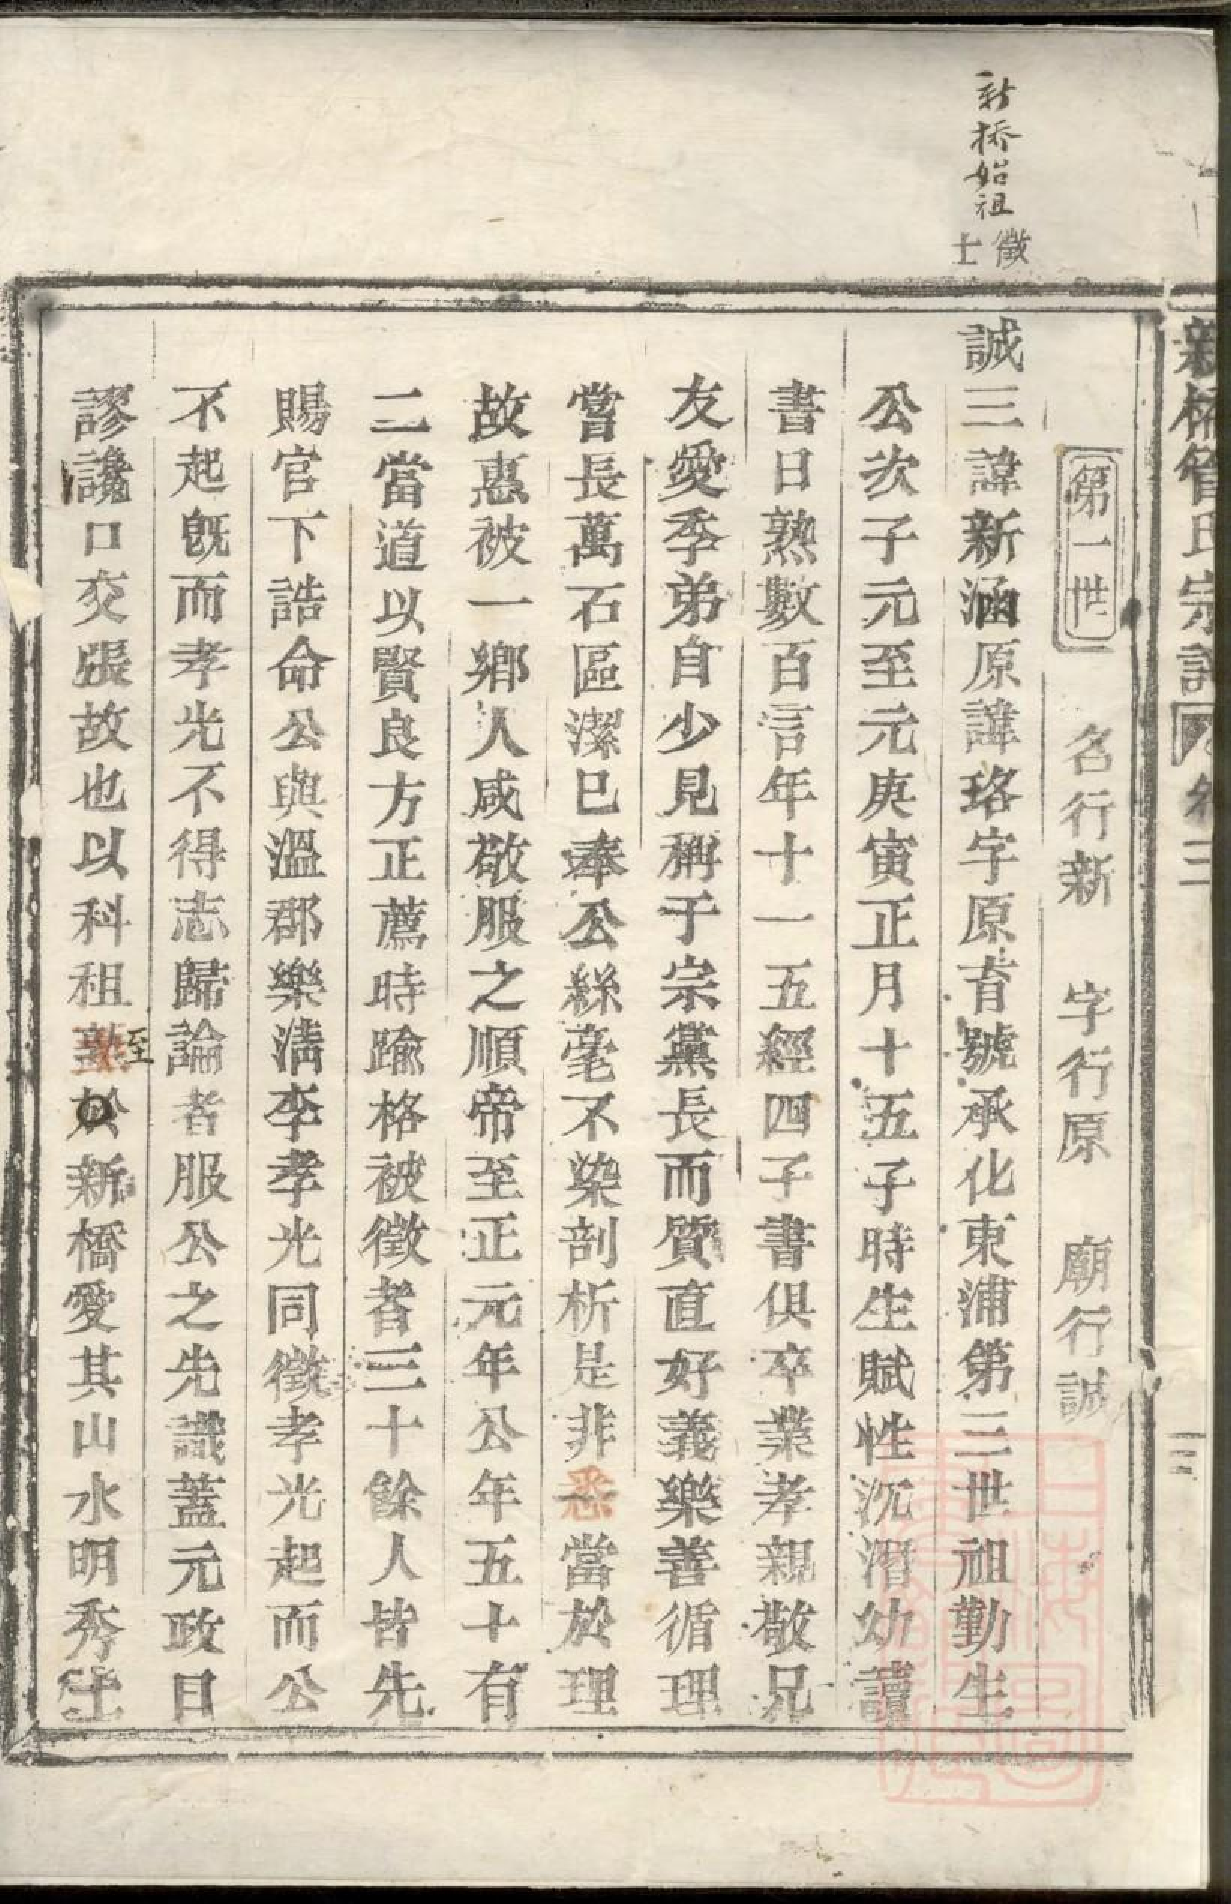 新橋管氏宗譜 卷三
三
新橋始祖
徵士
第一世 名行新 字行原 廟行誠
誠三諱新涵原諱珞字原育號承化東浦第三世祖勤生
公次子元至元庚寅正月十五子時生賦性沉潛幼讀
書日熟數百言年十一五經四子書俱卒業孝親敬兄
友愛季弟自少見稱于宗黨長而質直好義樂善循理
嘗長萬石區潔已奉公絲毫不染剖析是非悉當於理
故惠被一鄉人咸敬服之順帝至正元年公年五十有
二當道以賢良方正薦時踰格被徵者三十餘人皆先
賜官下誥命公與溫郡樂清李孝光同徵孝光起而公
不起旣而孝光不得志歸論者服公之先識蓋元政日
謬讒口交張故也以科租至於新橋愛其山水明秀土